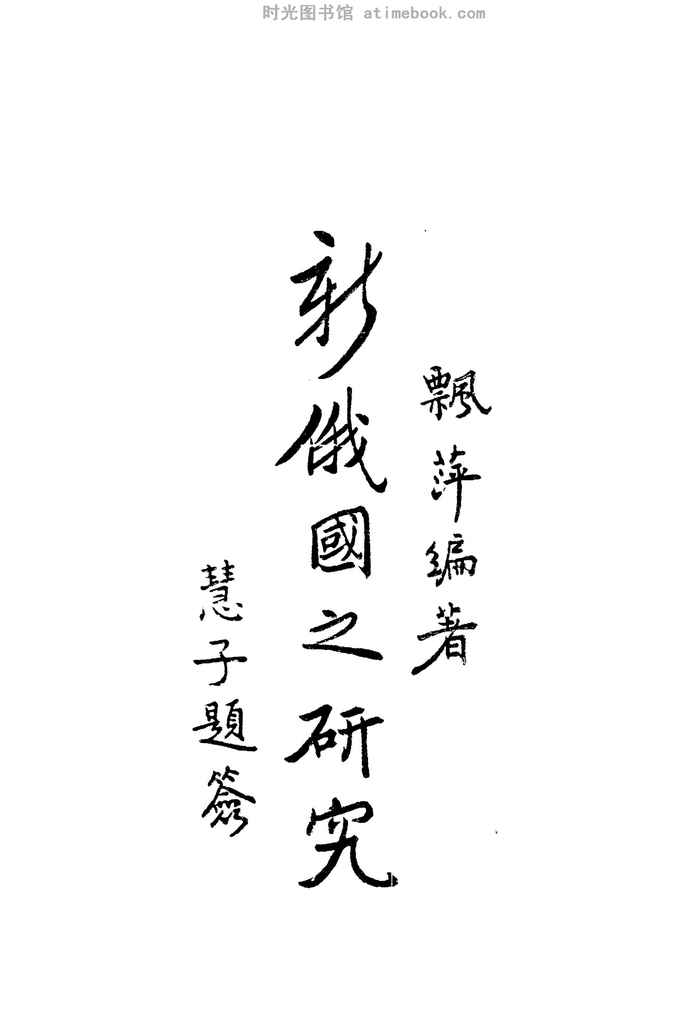 时光图书馆 atimebook.com
飄萍編著
新俄國之研究
慧子題簽